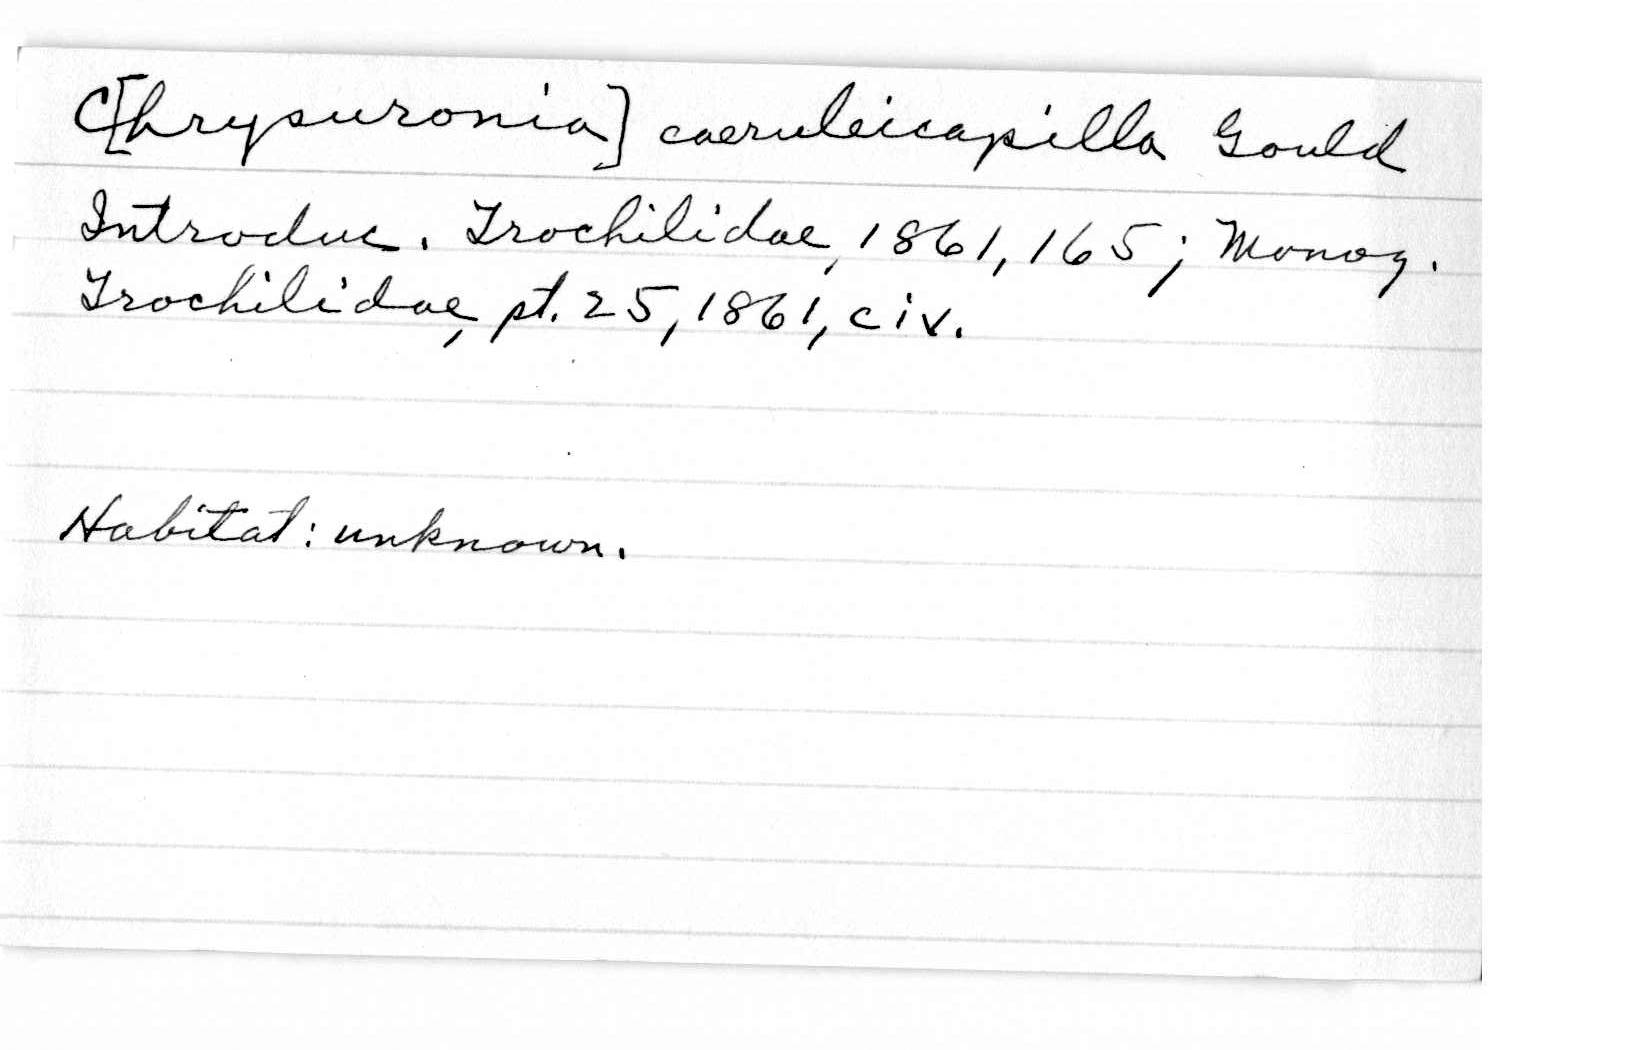 C[hrysuronia] caeruleicapilla Gould
Introduc. Trochilidae, 1861, 165; Monog.
Trochilidae, pt. 25, 1861, civ.
Habitat: unknown.